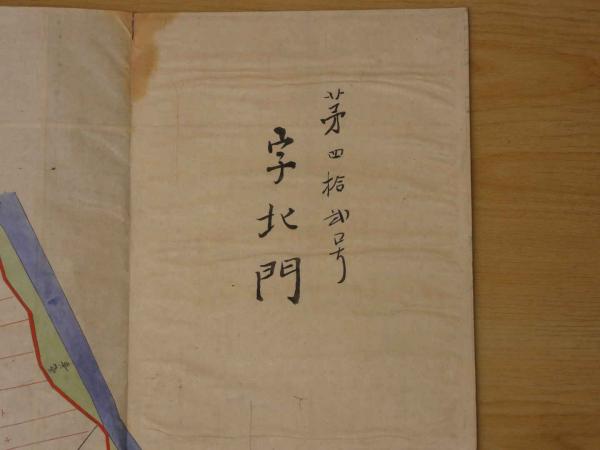 第四拾弐号
字北門